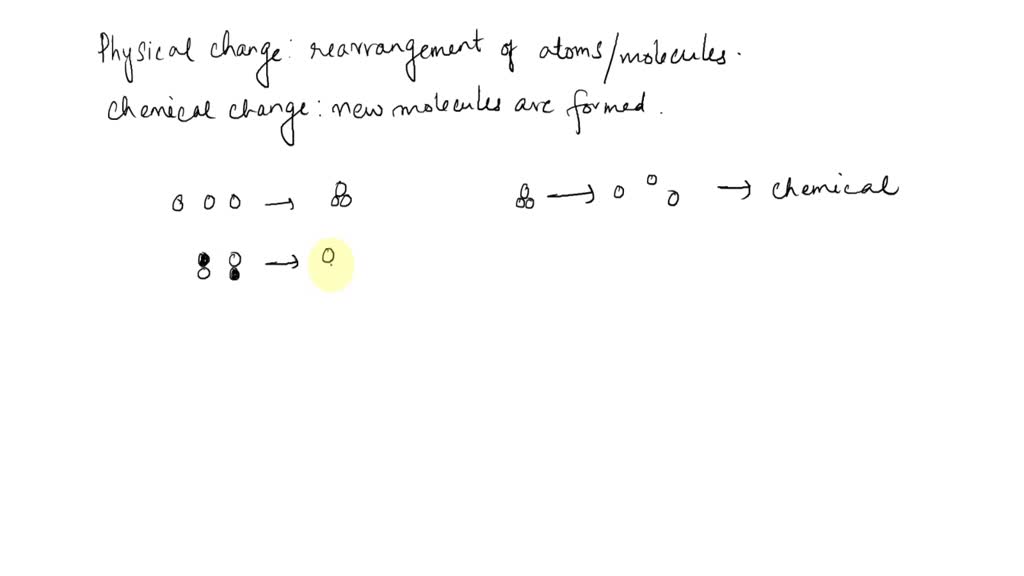 Physical change: rearrangement of atoms/molecules.
chemical change: new molecules are formed.
→ chemical